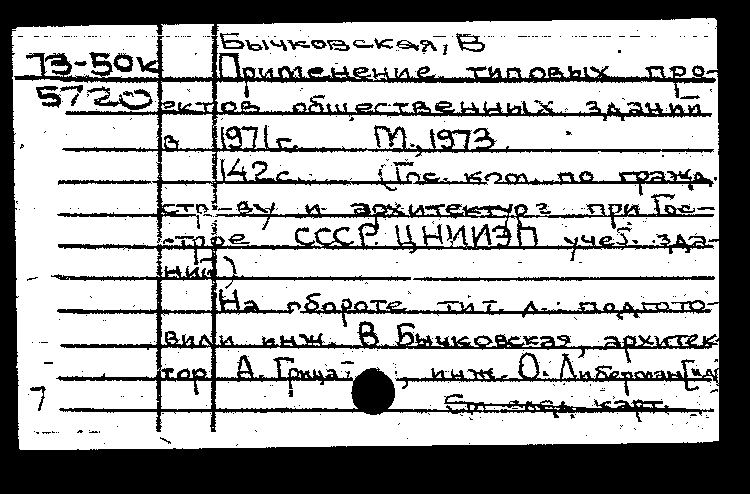 Бычковская, В
73-50к
Применение типовых про-
5720
ектов общественных зданий
в 1971 г. М., 1973.
142 с. (Гос. ком. по гражд.
стр-ву и архитектуре при Гос-
строе СССР. ЦНИИЭП учеб. зда-
ний)
На обороте тит. л.: подгото-
вили инж. В. Бычковская, архитек
тор А. Грица, инж. О. Либерман
7 См след. карт.